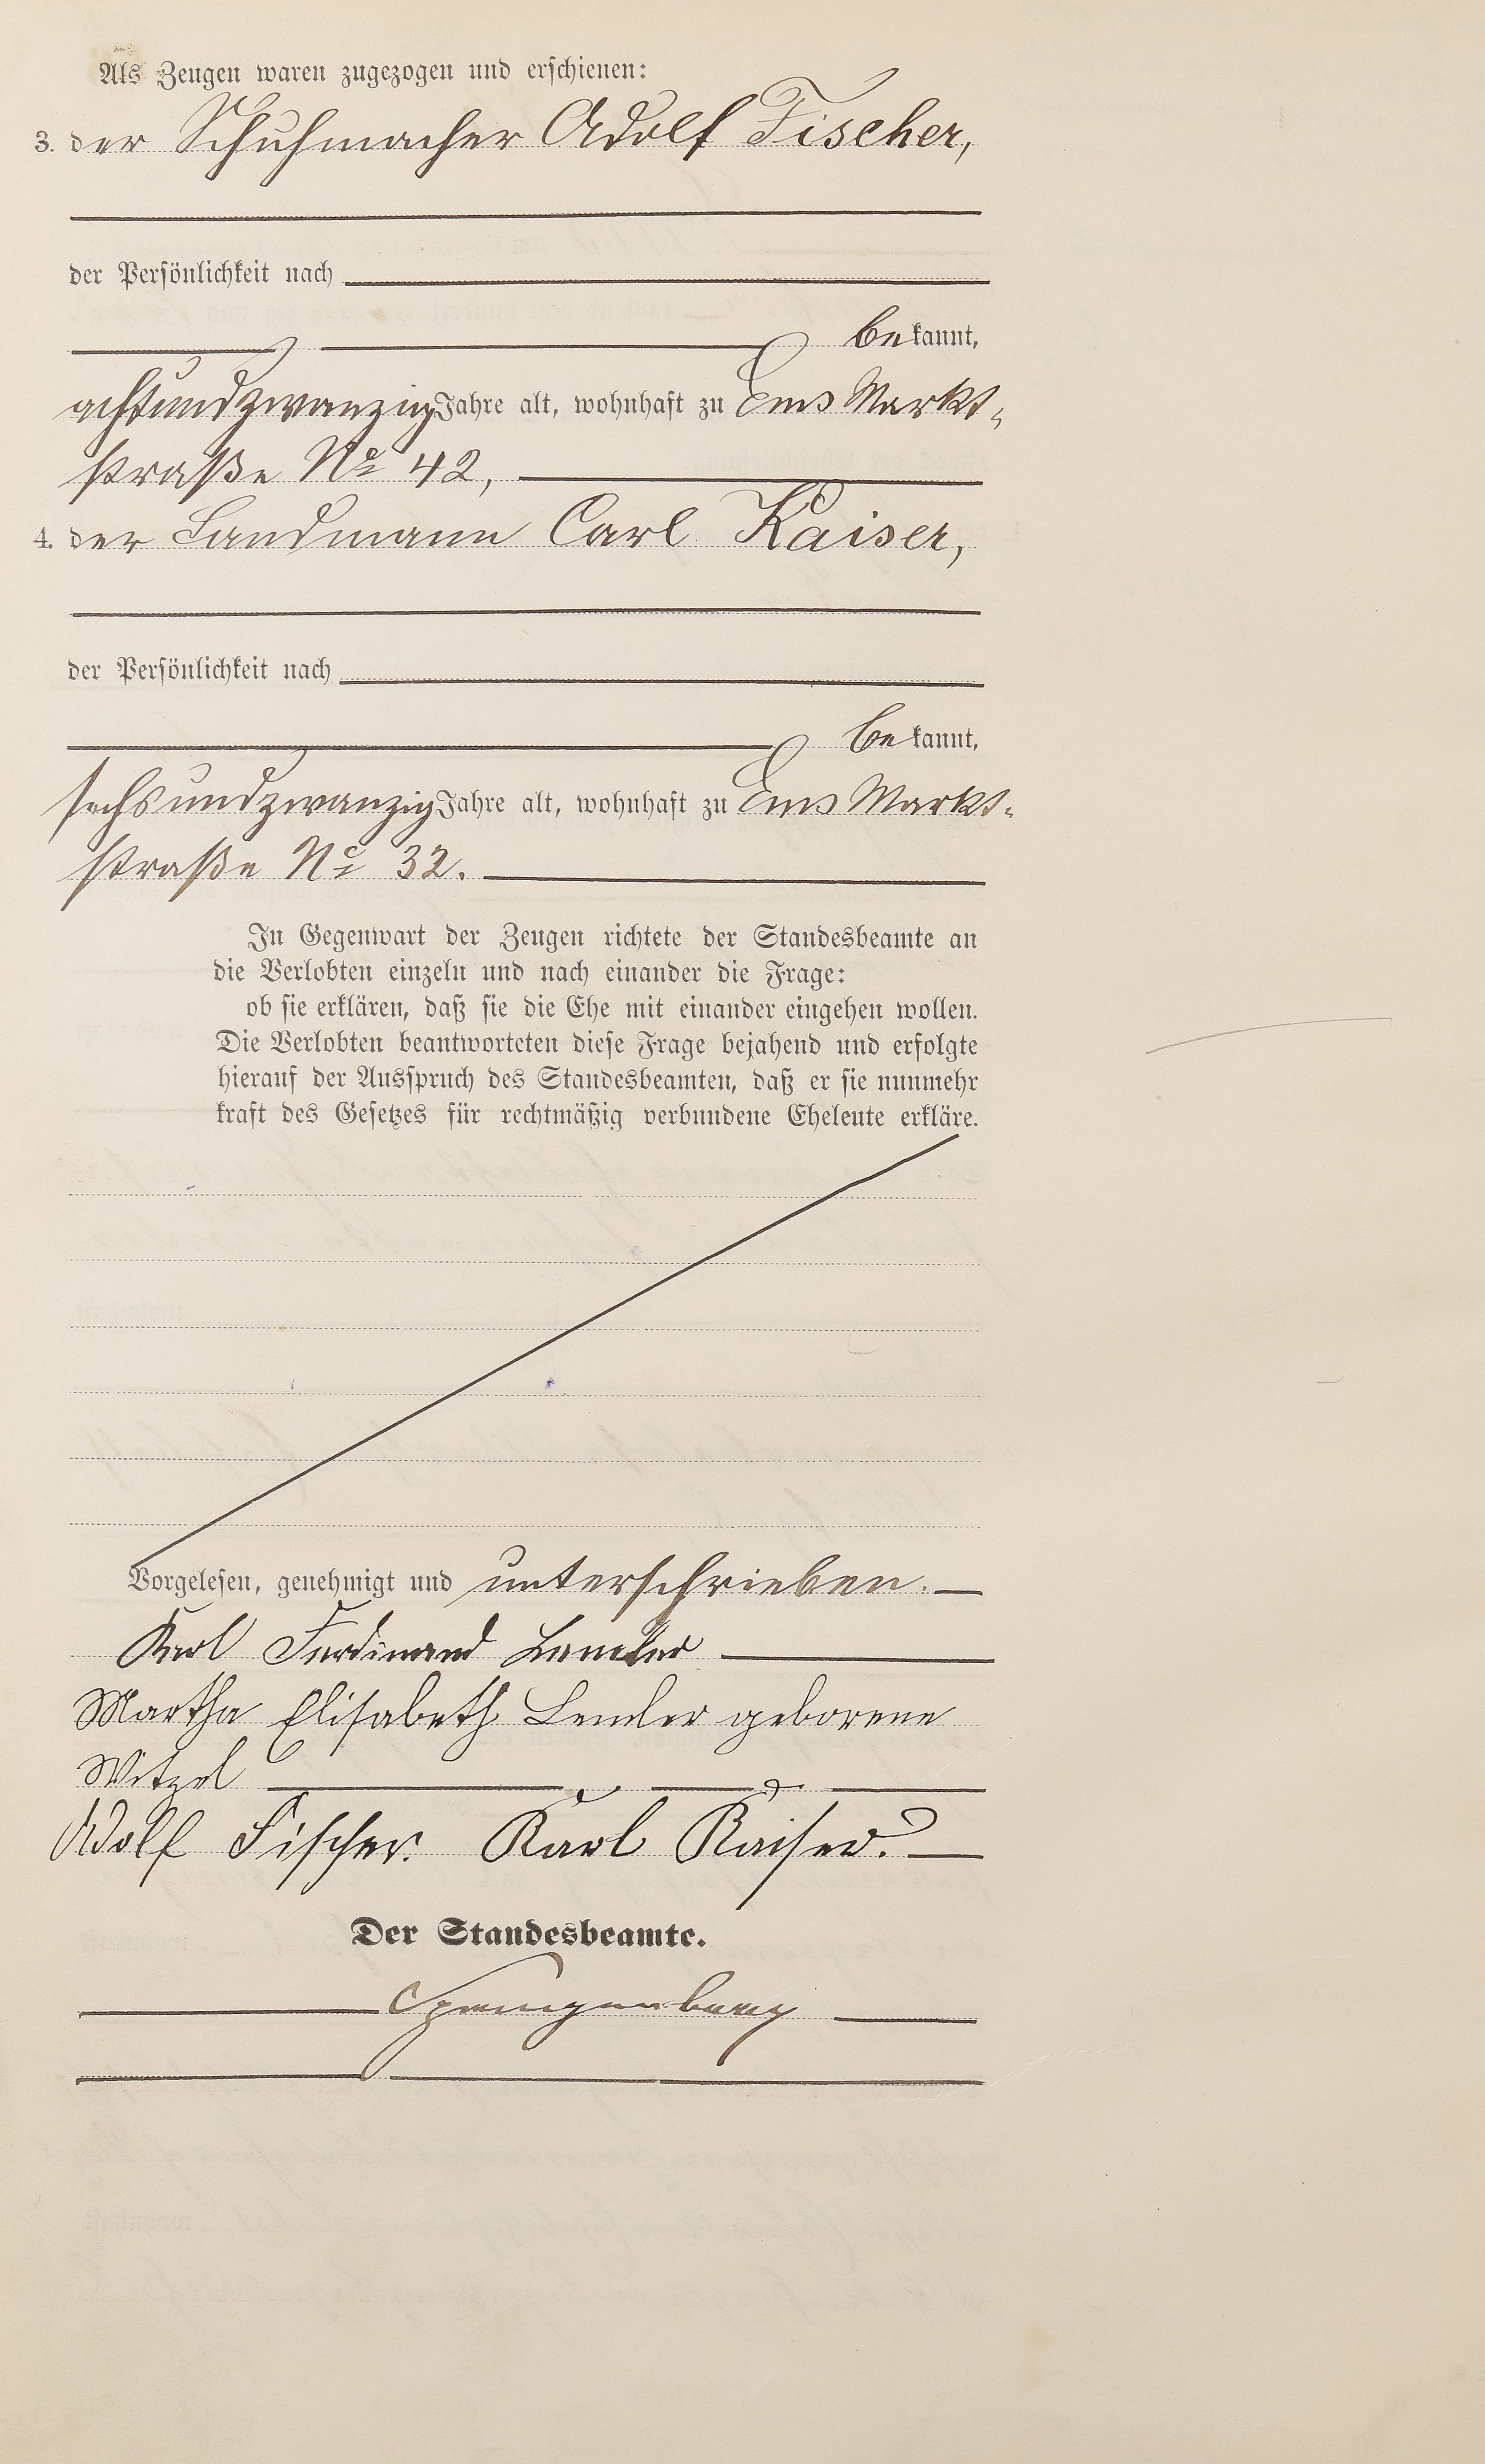 Als Zeugen waren zugezogen und erschienen:
3. der Schuhmacher Adolf Fischer,
der Persönlichkeit nach
bekannt,
achtundzwanzig Jahre alt, wohnhaft zu Ems Markt-
straße No 42,
4. der Landmann Carl Kaiser,
der Persönlichkeit nach
bekannt,
sechsundzwanzig Jahre alt, wohnhaft zu Ems Markt-
straße No 32.
In Gegenwart der Zeugen richtete der Standesbeamte an
die Verlobten einzeln und nach einander die Frage:
ob sie erklären, daß sie die Ehe mit einander eingehen wollen.
Die Verlobten beantworteten diese Frage bejahend und erfolgte
hierauf der Ausspruch des Standesbeamten, daß er sie nunmehr
kraft des Gesetzes für rechtmäßig verbundene Eheleute erkläre.
Vorgelesen, genehmigt und unterschrieben.
Karl Ferdinand
Martha Elisabeth geborene
Witzel
Adolf Fischer. Karl Kaiser.
Der Standesbeamte.
Spangenberg